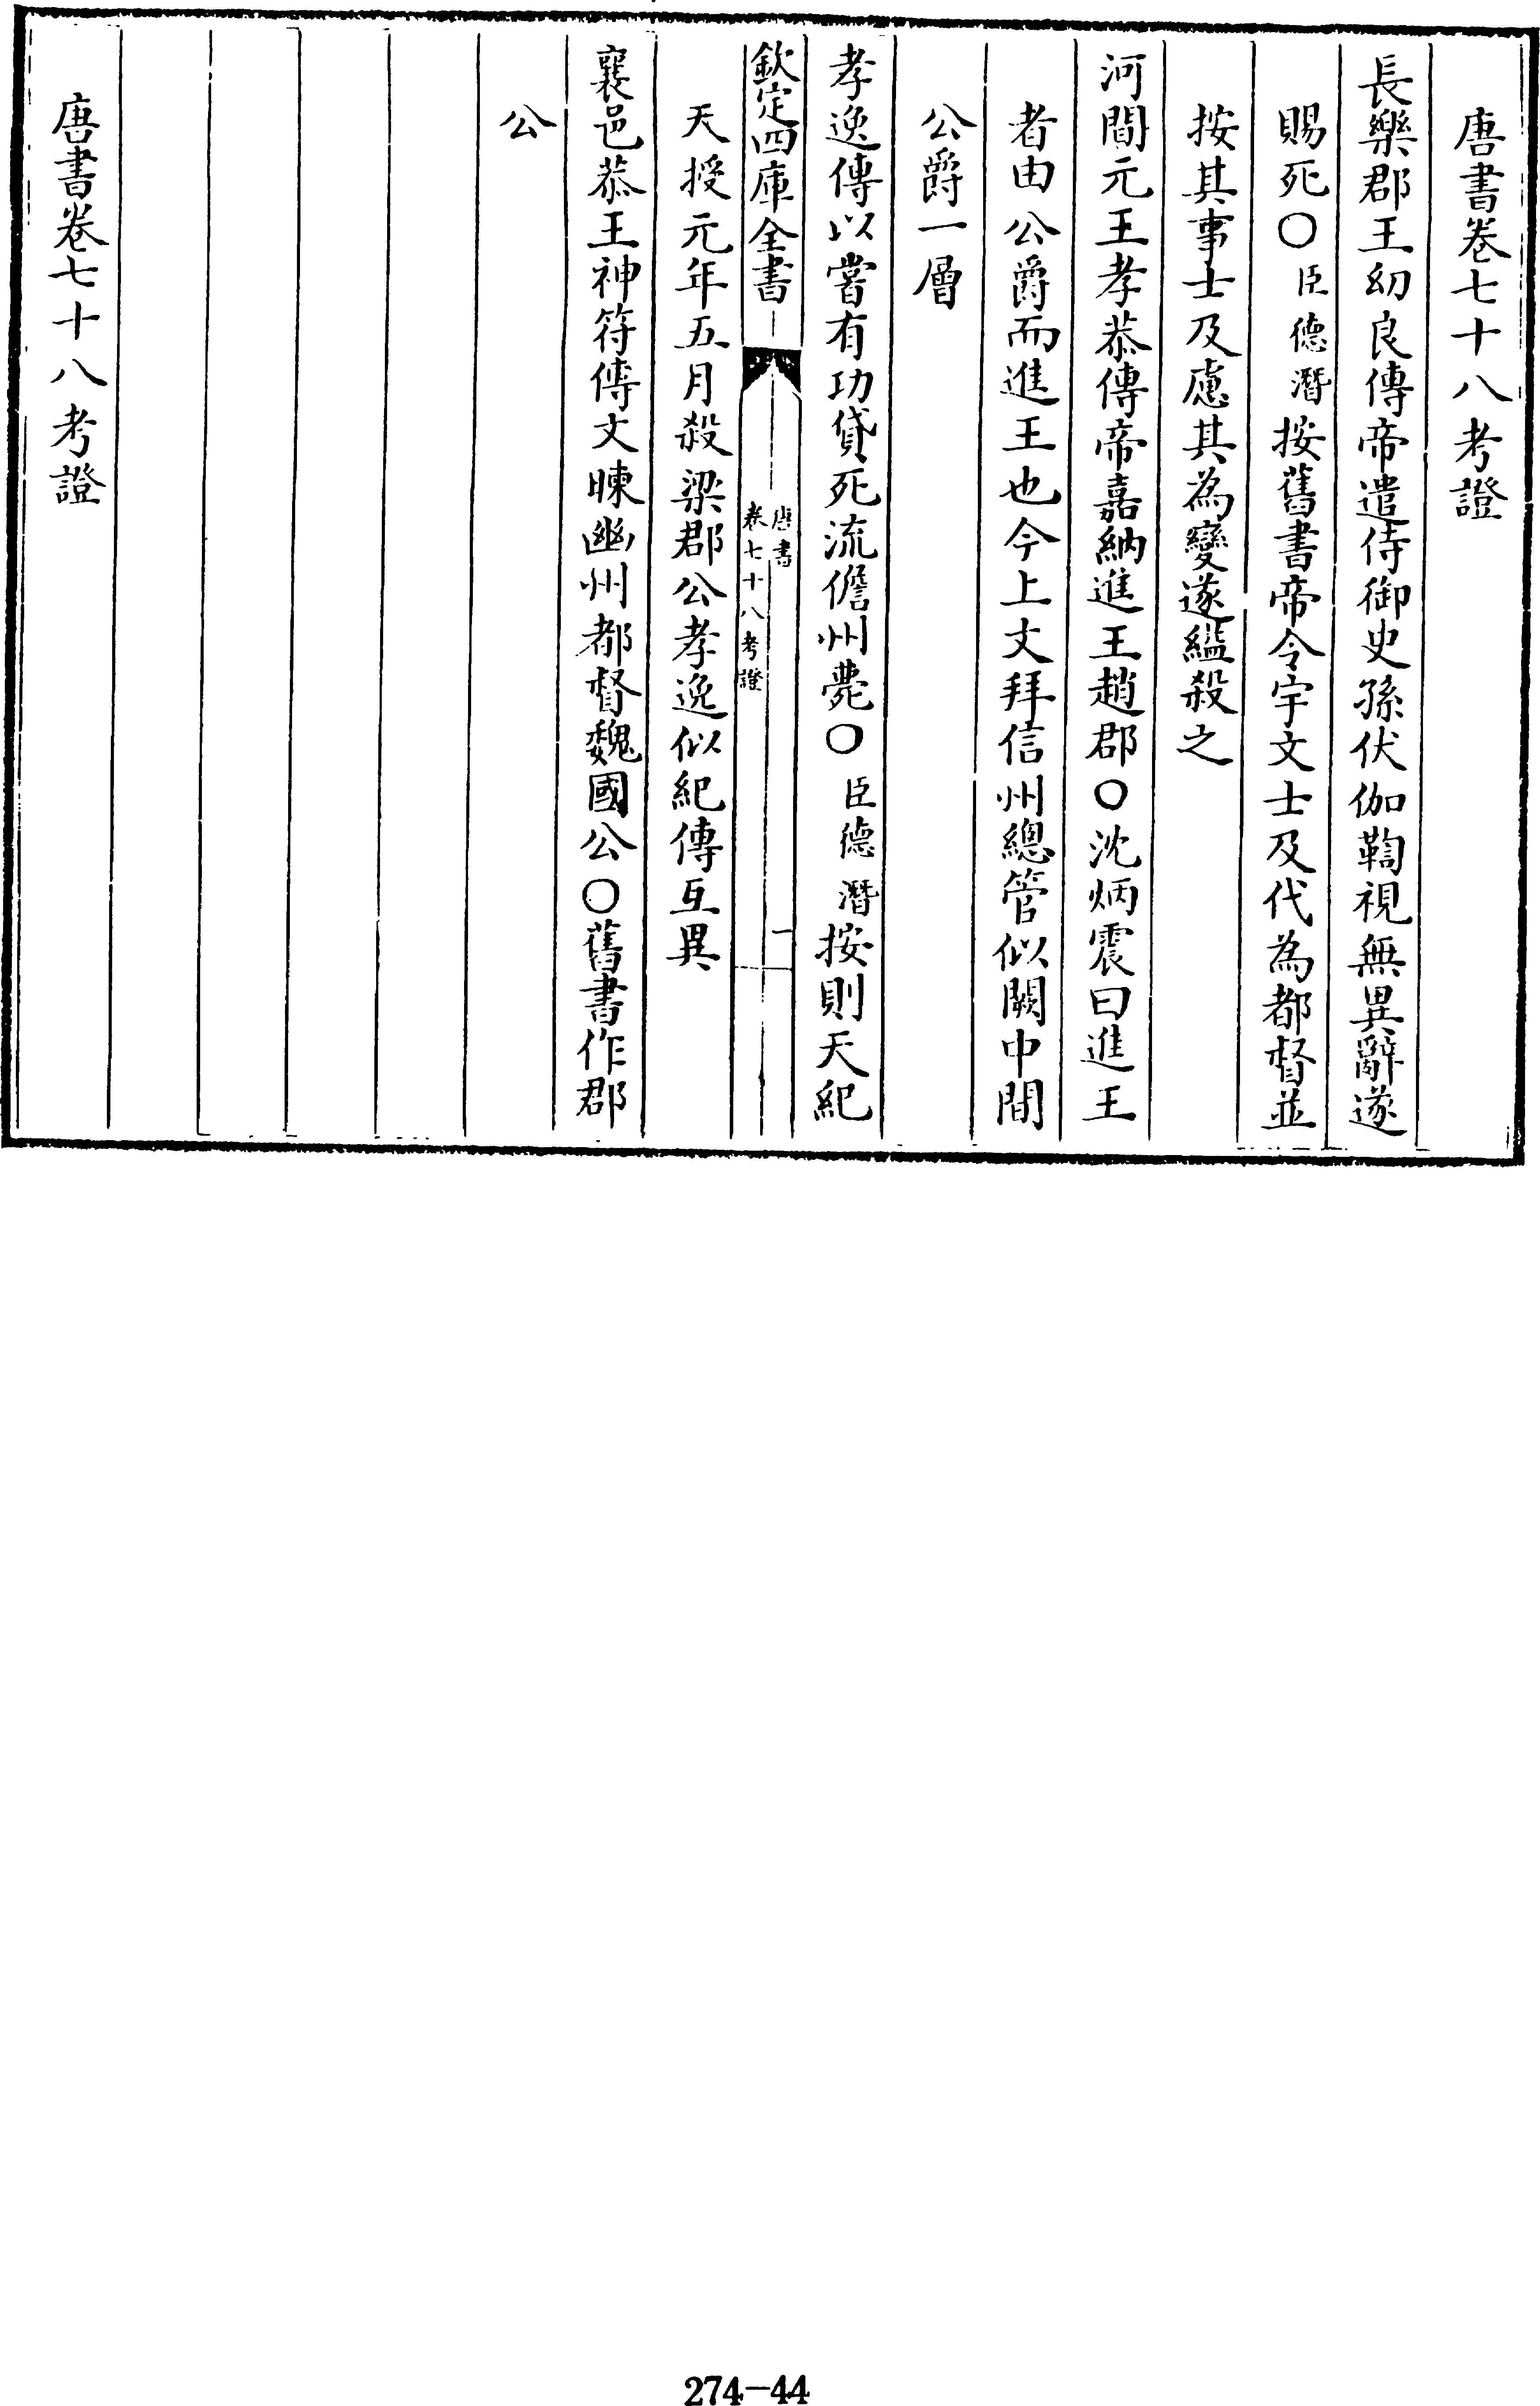 唐書卷七十八考證
長樂郡王幼良傳帝遣侍御史孫伏伽鞫視無異辭遂
賜死〇臣德潛按舊書帝令宇文士及代為都督並
按其事士及慮其為變遂縊殺之
河間元王孝恭傳帝嘉納進王趙郡〇沈炳震曰進王
者由公爵而進王也今上文拜信州總管似闕中間
公爵一層
孝逸傳以嘗有功貸死流儋州薨〇臣德潛按則天紀
欽定四庫全書
唐書
卷七十八考證
一
天授元年五月殺梁郡公孝逸似紀傳互異
襄邑恭王神符傳文暕幽州都督魏國公〇舊書作郡
公
唐書卷七十八考證
274-44